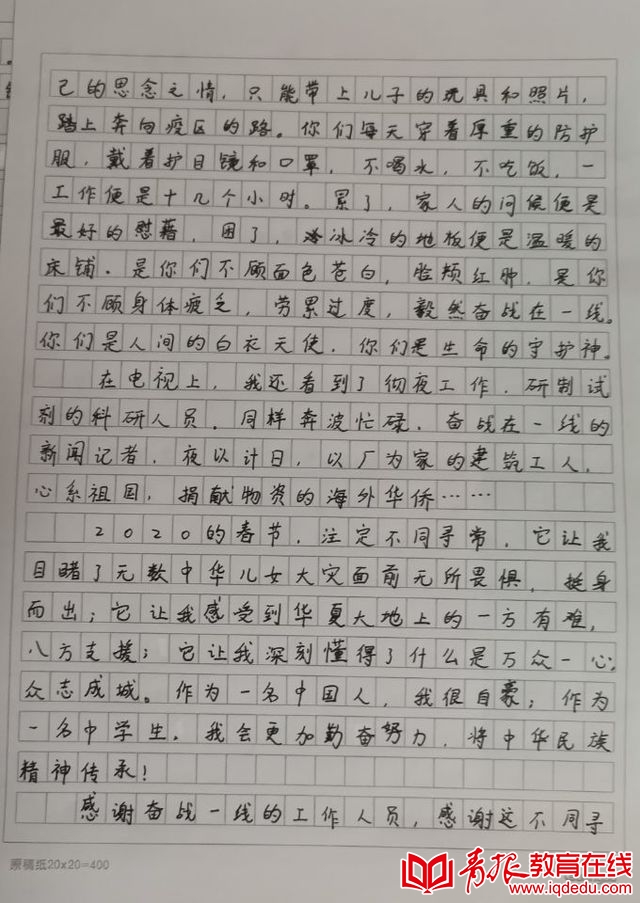 己的思念之情，只能带上儿子的玩具和照片，
踏上奔向疫区的路。你们每天穿着厚重的防护
服，戴着护目镜和口罩，不喝水，不吃饭，一
工作便是十几个小时。累了，家人的问候便是
最好的慰藉，困了，冰冷的地板便是温暖的
床铺．是你们不顾面色苍白，脸颊红肿，是你
们不顾身体疲乏，劳累过度，毅然奋战在一线。
你们是人间的白衣天使，你们是生命的守护神。
在电视上，我还看到了彻夜工作．研制试
剂的科研人员．同样奔波忙碌．奋战在一线的
新闻记者．夜以计日，以厂为家的建筑工人．
心系祖国，捐献物资的海外华侨……
2020的春节，注定不同寻常，它让我
目睹了无数中华儿女大灾面前无所畏惧，挺身
而出；它让我感受到华夏大地上的一方有难，
八方支援；它让我深刻懂得了什么是万众一心，
众志成城。作为一名中国人，我很自豪；作为
一名中学生．我会更加勤奋努力，将中华民族
精神传承！
感谢奋战一线的工作人员，感谢这不同寻
原稿纸20×20=400
青报教育在线
www.iqdedu.com